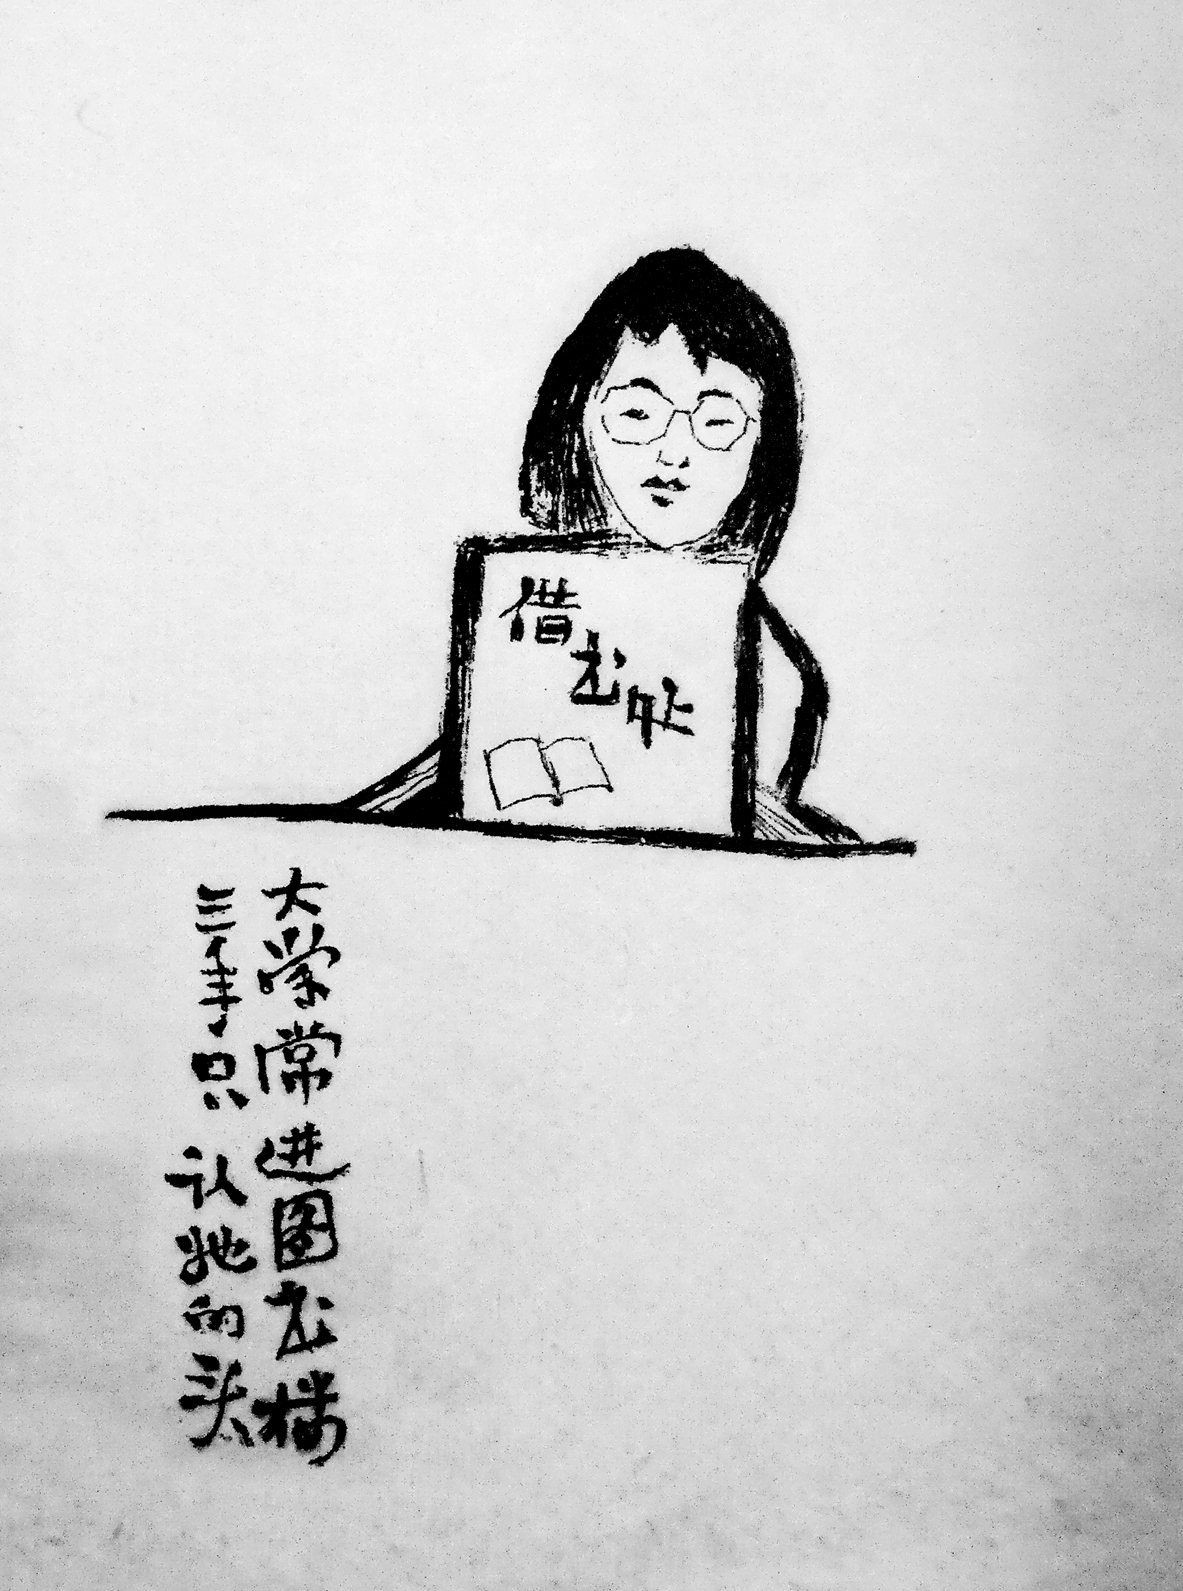 借书处
大学常进图书楼
三年只认她的头